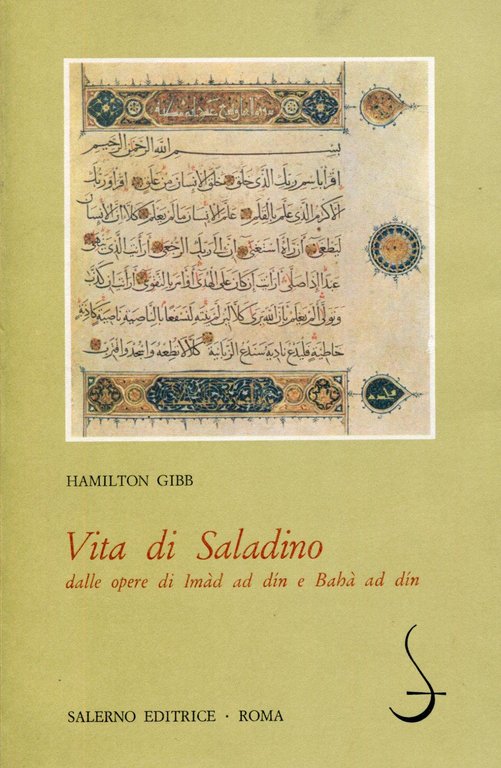 بسم الله الرحمن الرحيم
اقرأ باسم ربك الذي خلق خلق الانسان من علق اقرأ وربك
الاكرم الذي علم بالقلم علم الانسان ما لم يعلم كلا ان الانسان
ليطغى أن رآه استغنى ان الى ربك الرجعى أرأيت الذي ينهى
عبدا اذا صلى أرأيت ان كان على الهدى أو أمر بالتقوى أرأيت ان كذب
وتولى ألم يعلم بأن الله يرى كلا لئن لم ينته لنسفعا بالناصية ناصية كاذبة
خاطئة فليدع ناديه سندع الزبانية كلا لا تطعه واسجد واقترب
HAMILTON GIBB
Vita di Saladino
dalle opere di Imàd ad dín e Bahà ad dín
SALERNO EDITRICE · ROMA